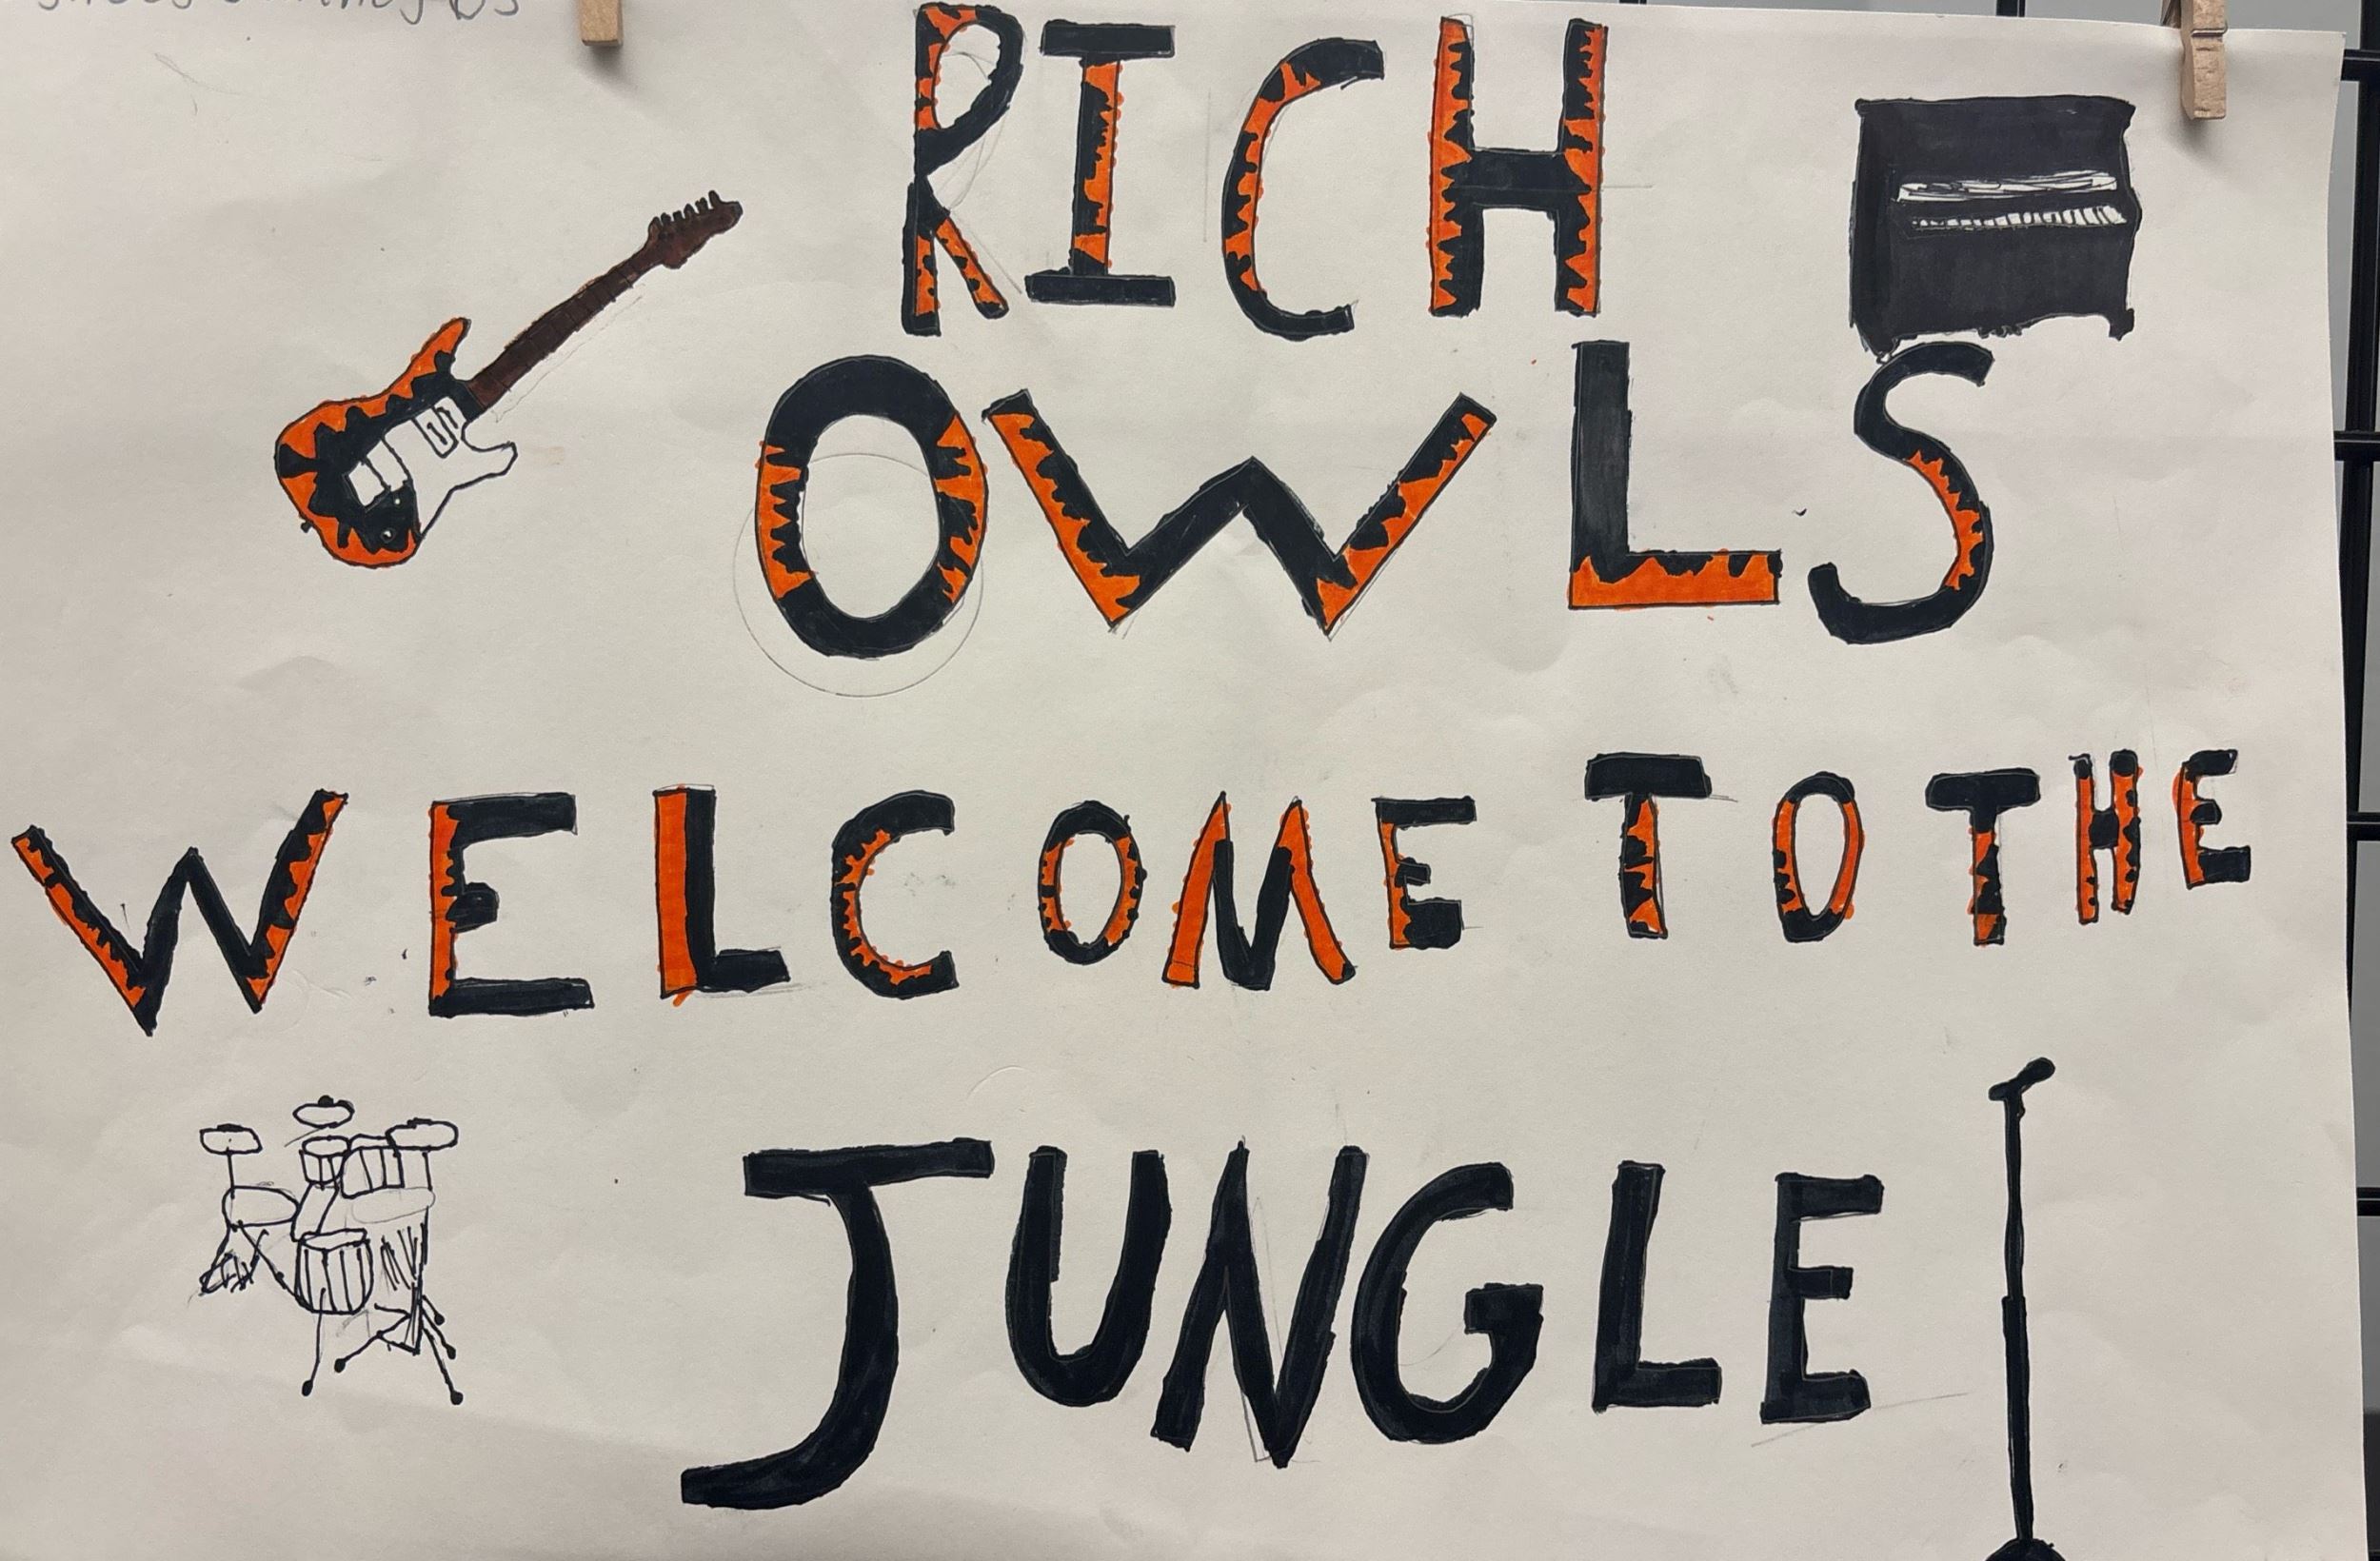 RICH
OWLS
WELCOME TO THE
JUNGLE